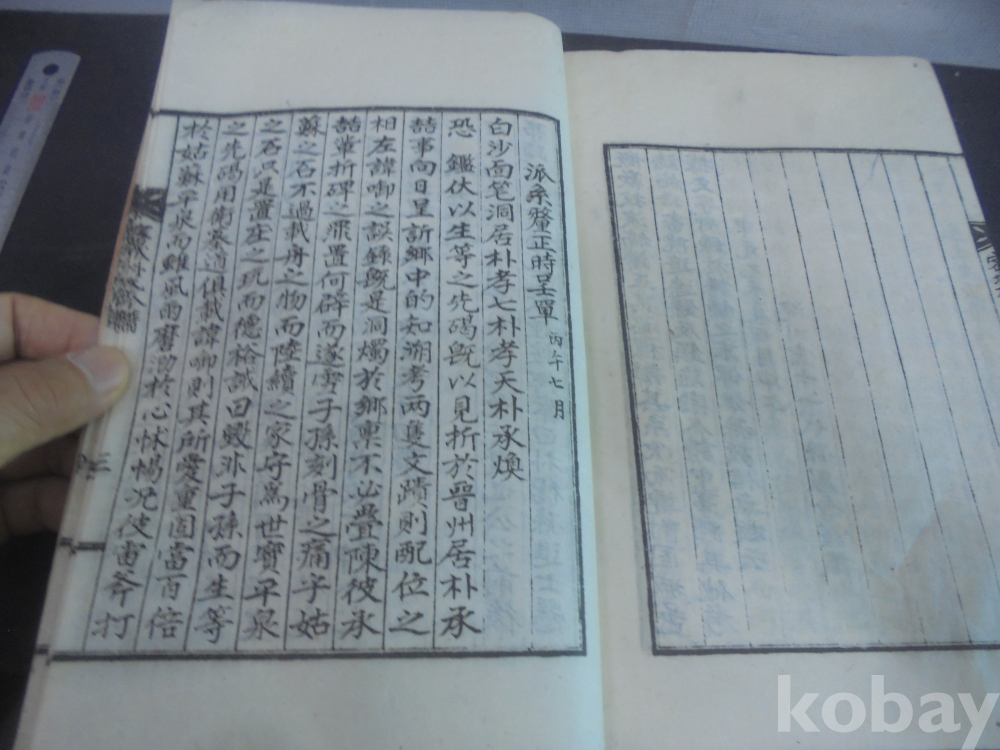 派系釐正時呈單 丙午七月
白沙面笔洞居朴孝七朴孝天朴承煥
恐 鑑伏以生等之先碣旣以見折於晋州居朴承
喆事向日呈訴鄉中的知溯考两隻文蹟則配位之
相左諱啣之誤錄旣是洞燭於鄉禀不必疊陳彼承
喆輩折碑之罪置何辟而遂寃子孫刻骨之痛乎姑
蘇之石不過載舟之物而陸續之家守爲世寶平泉
之石只是置庄之玩而德裕試曰毁非子孫而生等
之先碣用衛墓道俱載諱啣則其所愛重固當百倍
於姑蘇平泉而雖風雨磨泐於心怵惕况彼雷斧打
三
kobay